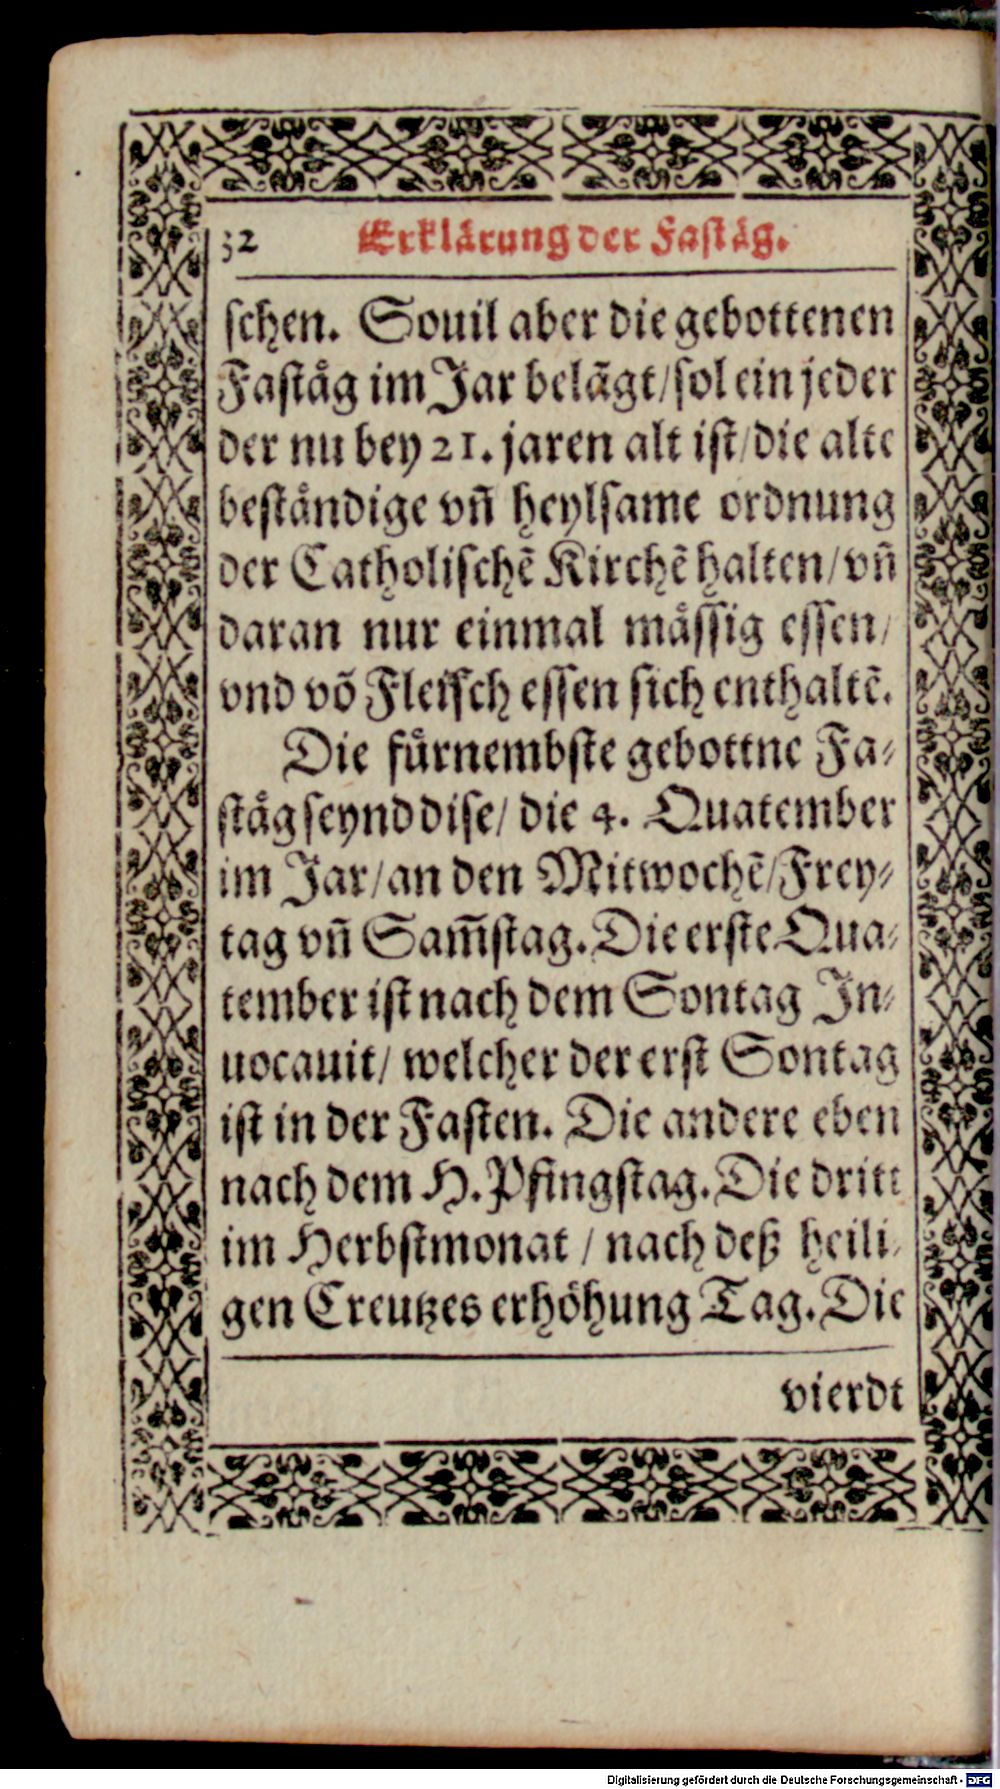 32 Erklärung der Fastäg.
schen. Souil aber die gebottenen
Faståg im Jar belãgt/ sol ein jeder
der nu bey 21. jaren alt ist/ die alte
beståndige vñ heylsame ordnung
der Catholischẽ Kirchẽ halten/ vñ
daran nur einmal måssig essen/
vnd võ Fleisch essen sich enthaltẽ.
Die fůrnembste gebottne Fa-
ståg seynd dise/ die 4. Quatember
im Jar/ an den Mitwochẽ/ Frey-
tag vñ Sam̃stag. Die erste Qua-
tember ist nach dem Sontag In-
uocauit/ welcher der erst Sontag
ist in der Fasten. Die andere eben
nach dem H. Pfingstag. Die dritt
im Herbstmonat / nach deß heili-
gen Creutzes erhöhung Tag. Die
vierdt
Digitalisierung gefördert durch die Deutsche Forschungsgemeinschaft - DFG